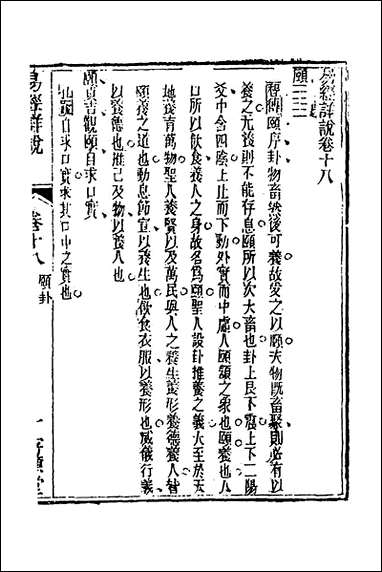 易經詳說卷十八
頤
程傳頤序卦物畜然後可養故受之以頤夫物既畜聚則必有以
養之无養則不能存息頤所以次大畜也卦上艮下震上下二陽
爻中含四陰上止而下動外實而中虛人頤頷之象也頤養也人
口所以飲食養人之身故名為頤聖人設卦推養之義大至於天
地養育萬物聖人養賢以及萬民與人之養生養形養德養人皆
頤養之道也動息節宣以養生也飲食衣服以養形也威儀行義
以養德也推己及物以養人也
頤貞吉觀頤自求口實
自求口實求其口中之實也
易經詳說
卷十八 頤卦
一